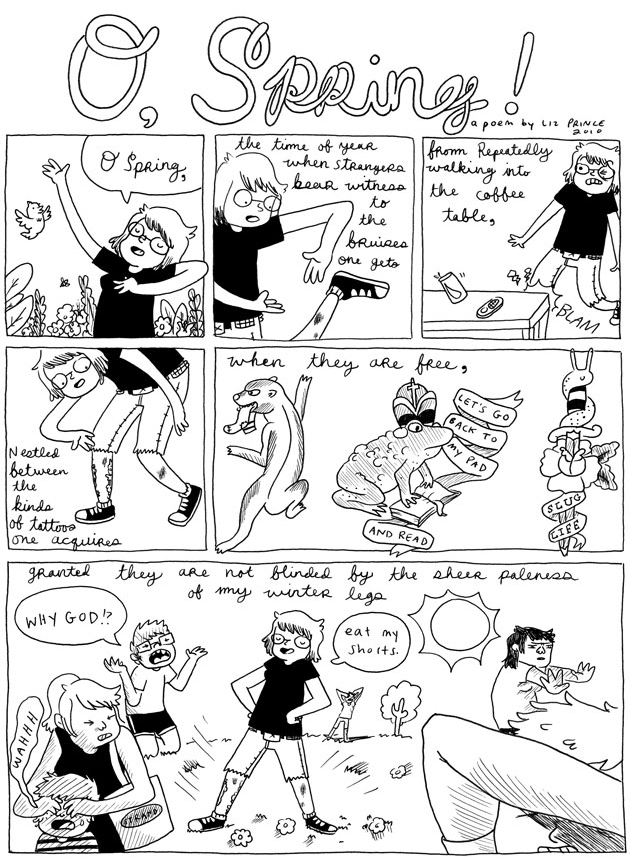 O, Spring!
a poem by LIZ PRINCE
2010
O Spring,
the time of year
when strangers
bear witness
to
the
bruises
one gets
from Repeatedly
walking into
the coffee
table,
BLAM
Nestled
between
the
kinds
of tattoos
one acquires
when they are free,
LET'S GO
BACK TO
MY PAD
AND READ
SLUG
LIFE
granted they are not blinded by the sheer paleness
of my winter legs
WHY GOD!?
eat my
shorts.
WAHHH
STRAND